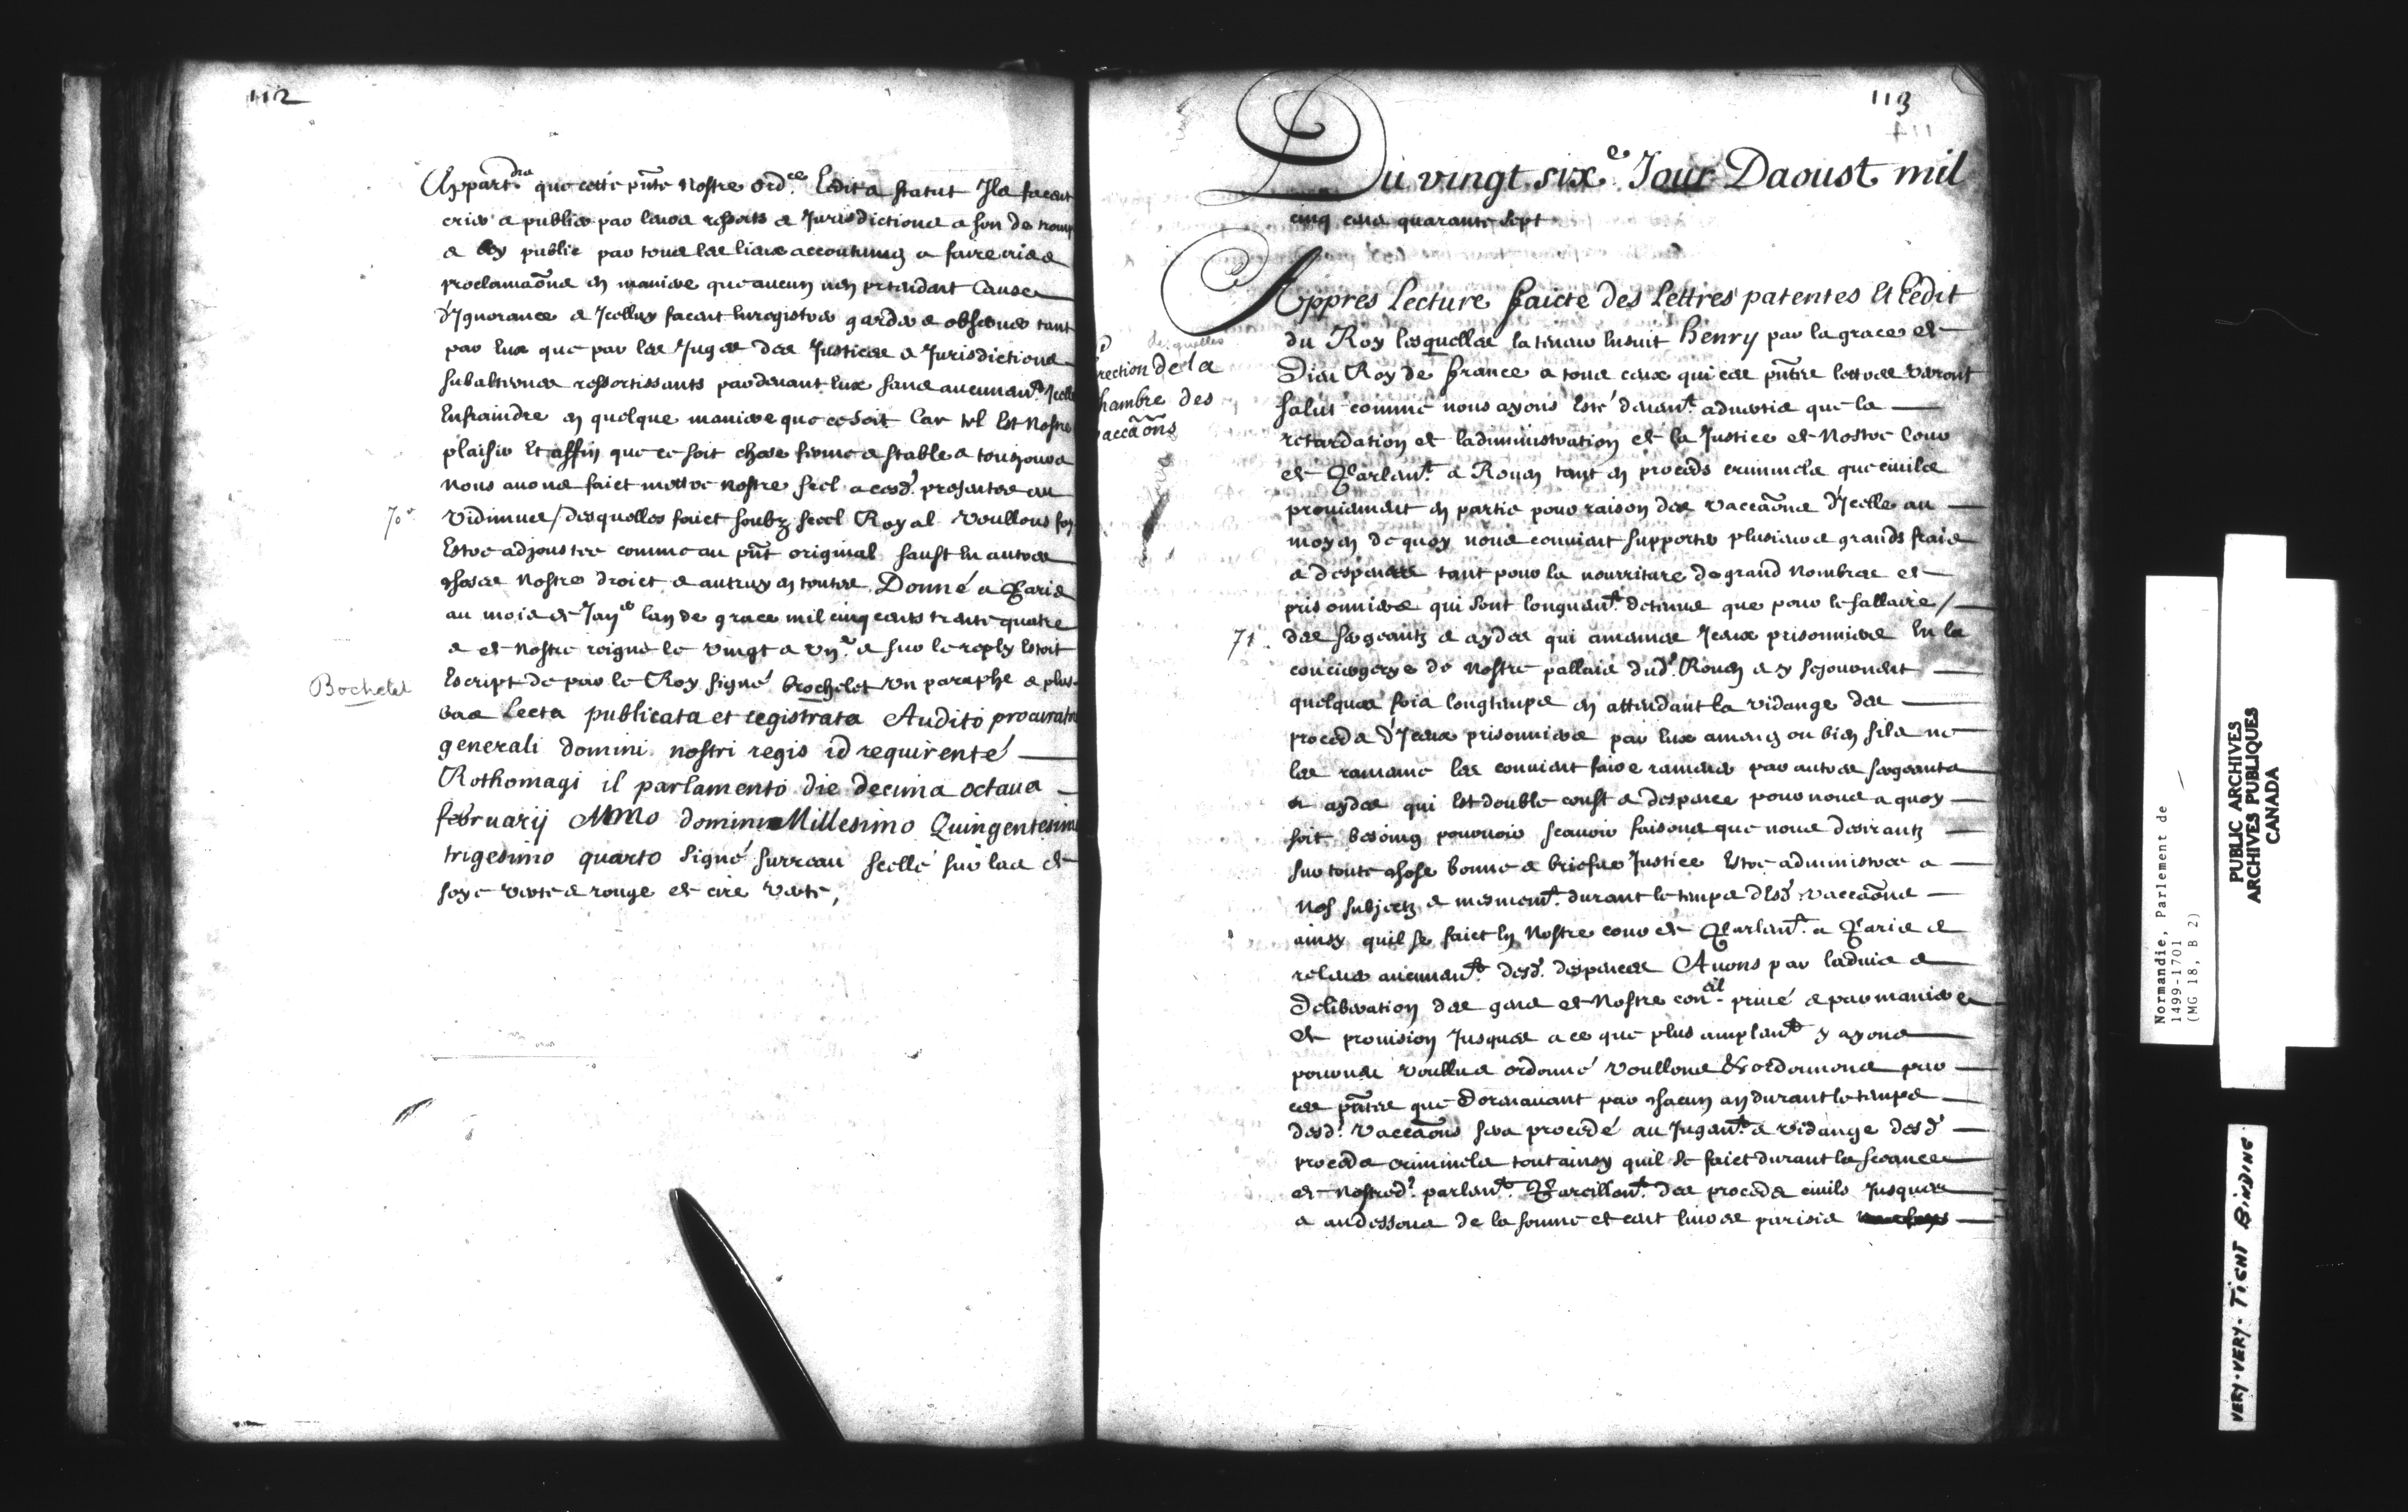 112
Appart.dra que cette pñte Nostre ord.ce Ledit & statut Ils facent
crier & publier par leurs ressorts & Jurisdictions a son de tromp
& cry public par tous les lieux accoutumez a faire cris &
proclamaõns en maniere que aucun nen pretendent Cause
d'Ignorance & Icelluy facent Enregistrer garder & observer tant
par Eux que par les Juges des Justices & Jurisdictions
subalternes ressortissants pardevant Eux sans aucunem.t Icelle
Enfraindre en quelque maniere que ce soit Car tel Est Nostre
plaisir Et affin que ce soit chose ferme & stable a tousjours
Nous avons faict mettre Nostre seel a cesd. presentes au
70e
Vidimus / desquelles faict soubz seeel Royal voullons foy
Estre adjoustee comme au pñt original sauf En autres
choses Nostre droict & autruy en toutes Donné a Paris
au mois de Janer lan de grace mil cinq cents trente quatre
& de Nostre reigne le vingt & un.e & sur le reply Estoit
Bochetel
Escript de par le Roy signé brochelet un paraphe & plus
bas Lecta publicata et registrata Audito procurato
generali domini nostri regis id requirenté
Rothomagi il parlamento die decima octava
februarij Anno domini Millesimo Quingentesimo
trigesimo quarto signé surreau seellé sur lac de
soye verte & rouge de cire verte,
113
114
Du vingt six.e Jour Daoust mil
cinq cens quarante sept
Appres lecture faicte des Lettres patentes Et Ledit
desquelles
du Roy lesquelles la teneur Ensuit Henry par la grace de
rection de la
hambre des
accaõns
Dieu Roy de france a tous ceux qui ces pñtes lettres verront
salut comme nous ayons Esté deuem.t advertis que la
retardation de ladministration de la Justice de Nostre Cour
de Parlem.t a Rouen tant en proceds criminels que civils
proviennent en partie pour raison des vaccaõns d'Icelle au
moyen de quoy nous convient supporter plusieurs grands frais
& despences tant pour la nourriture de grand nombre de
prisonniers qui sont longuem.t detenus que pour le sallaire /
71.
des sergeantz & aydes qui amennes Iceux prisonniers En la
conciergerye de Nostre pallais dud. Rouen & y sejournent
quelques fois longtemps en attendant la vidange des
proceds d'Iceux prisonniers par Eux amenez ou bien sils ne
les ramenne les convient faire ramener par autres sergeants
& aydes qui Est double coust & despence pour nous a quoy
soit besoing pourvoir scavoir faisons que nous desirantz
sur toute chose bonne & briefve Justice Estre administree a
Nos subjectz & mesmem.t durant le temps desd. vaccaõns
ainsy quil se faict En Nostre cour de Parlem.t a Paris &
relever aucunem.t desd. despences Avons par ladvis &
Deliberation des gens de Nostre con.eil privé & par maniere
de provision Jusques a ce que plus amplem.t y ayons
pourveu voullu & ordonné voullons & ordonnons par
ces pñtes que Dorenavant par chacun an durant le temps
desd. vaccaõns sera procedé au Jugem.t & vidange desd
proceds criminels tout ainsy quil se faict durant la seance
de Nostred. parlem.t Pareillem.t des proceds civils Jusques
& au dessous de la somme de cent livres parisis
Normandie, Parlement de
1499-1701
(MG 18, B 2)
PUBLIC ARCHIVES
ARCHIVES PUBLIQUES
CANADA
VERY-VERY-TIGHT BINDING